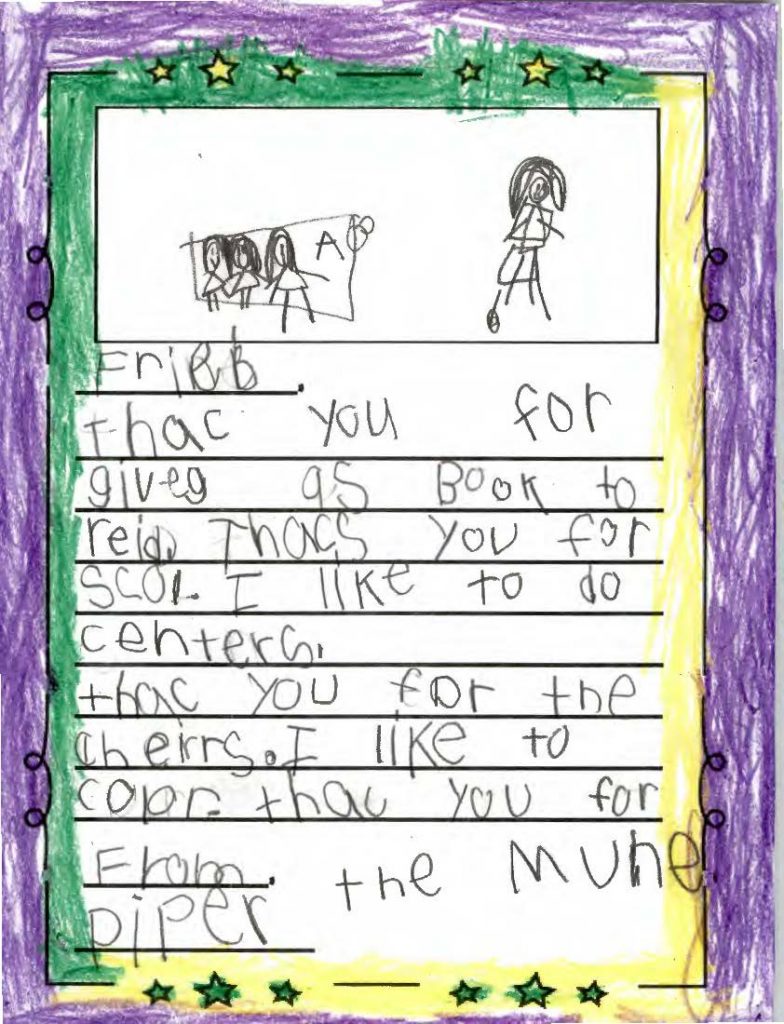 A
Friebb.
thac you for
giveg as Book to
reid. Thacs you for
scol. I like to do
centers.
thac you for the
cherrs. I like to
color. thac you for
the Mune
From.
piper